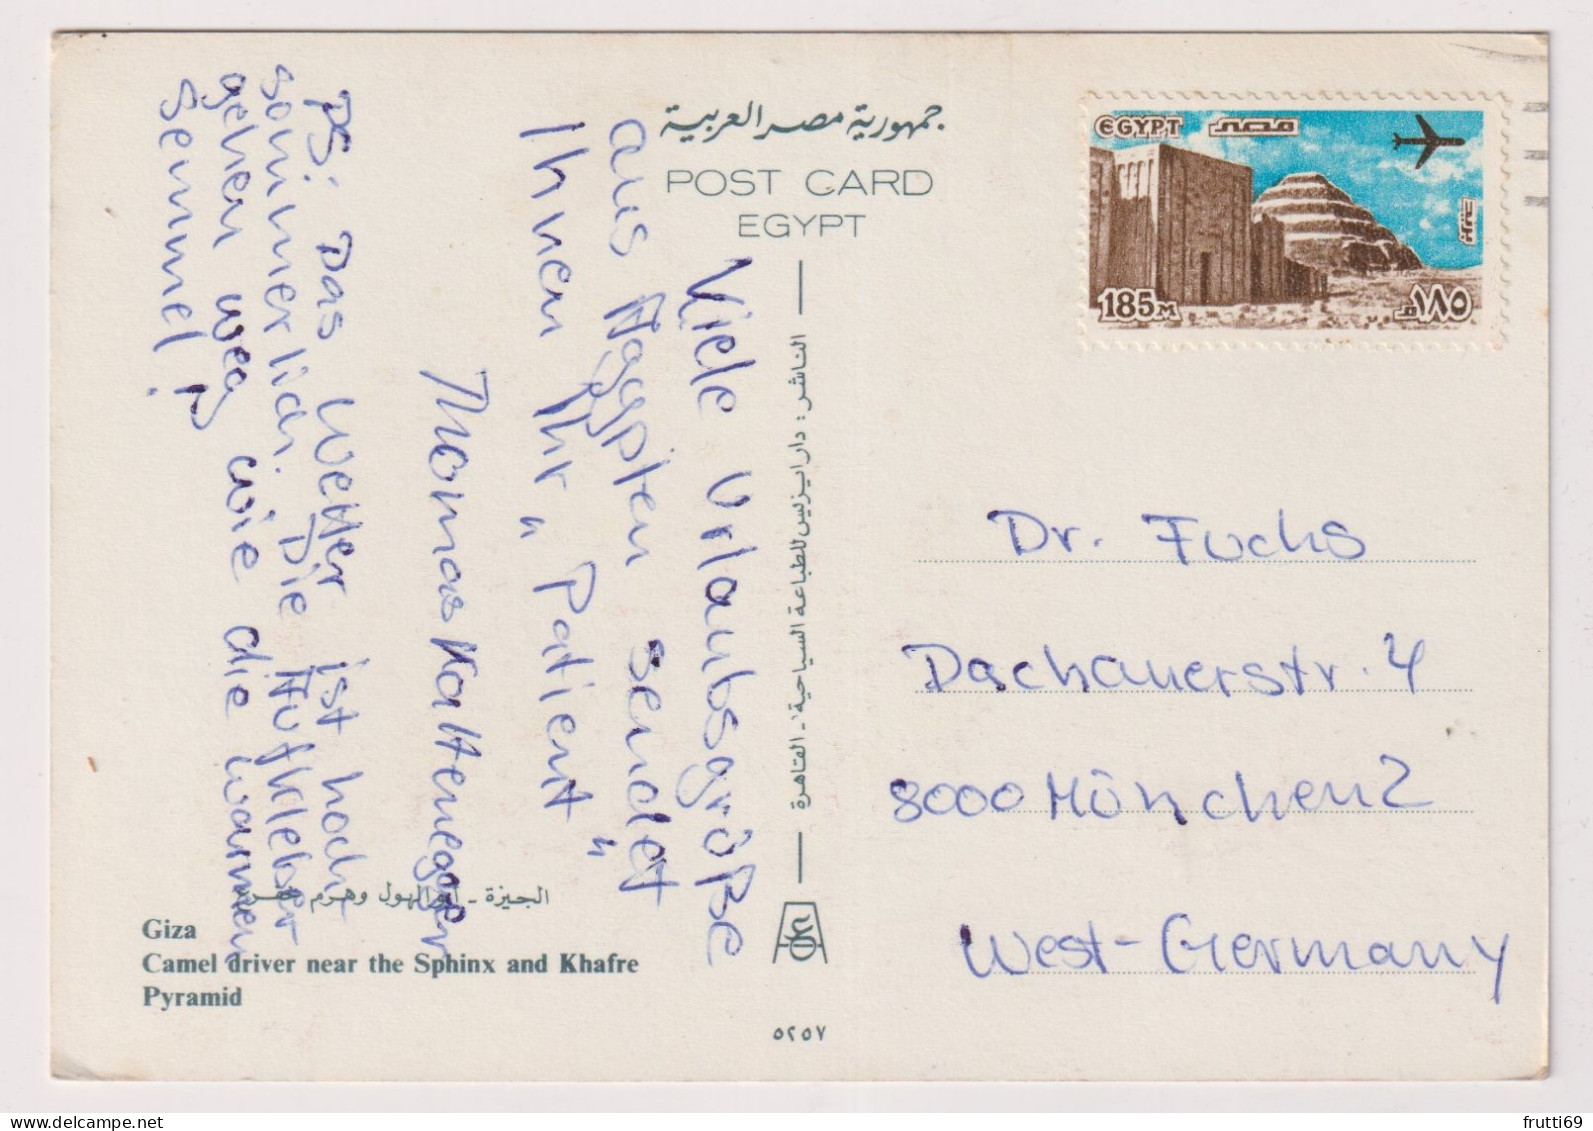 جمهورية مصر العربية
POST CARD
EGYPT
EGYPT مصر
185M
١٨٥م
Viele Urlaubsgrüße
aus Ägypten sendet
Ihnen Ihr "Patient"
Thomas Kaltenegger
PS: Das Wetter ist hoch
sommerlich. Die Aufkleber
gehen weg wie die warmen
Semmel!
الناشر: دار ايزيس للطباعة السياحية - القاهرة
Dr. Fuchs
Dachauerstr. 4
8000 München 2
West-Germany
الجيزة - أبو الهول وهرم خفرع
Giza
Camel driver near the Sphinx and Khafre
Pyramid
٥٢٥٧
frutti69